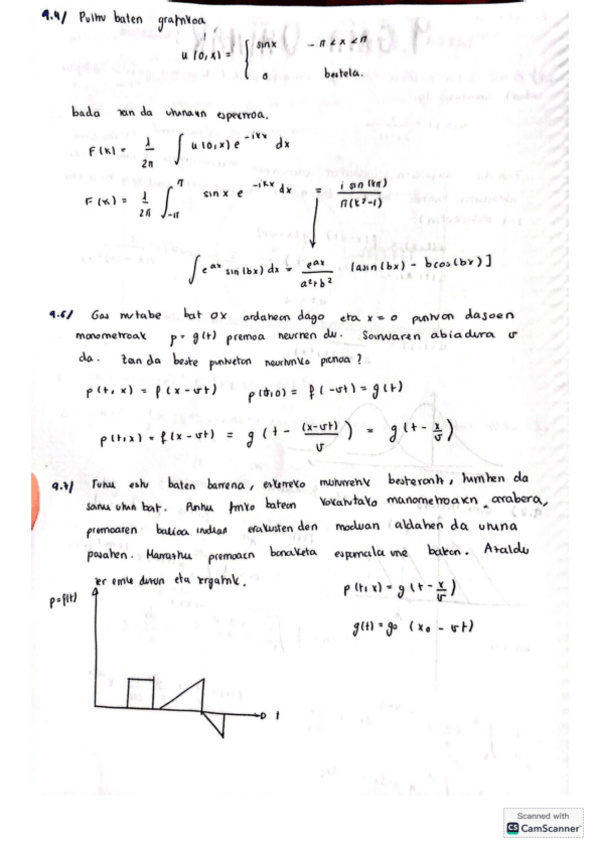 9.4/ Pultsu baten grafikoa
u(0,x) = { sinx -π<x<π
0 bestela.
bada zan da uhinaren espektroa.
F(k) = 1/2π ∫ u(0,x) e^{-ikx} dx
F(k) = 1/2π ∫_{-π}^{π} sin x e^{-ikx} dx = i sin(kπ)/π(k²-1)
∫ e^{ax} sin(bx) dx = e^{ax}/a²+b² [asin(bx) - bcos(bx)]
9.6/ Gas bat OX ardatzean dago eta x=0 puntuan dagoen
manometroak p=g(t) presioa neurtzen du. Soinuaren abiadura v
da. Zein da beste puntuetan neurtuko presioa?
p(t,x) = f(x-vt) p(t,0) = f(-vt) = g(t)
p(t,x) = f(x-vt) = g(t - (x-vt)/v) = g(t - x/v)
9.7/ Tutu estu baten barrena, ezkerreko muturretik besteraino, da
soinu uhin bat. Puntu finko batean kokatutako manometroaren arabera,
presioaren balioa irudian erakusten den moduan aldatzen da uhina
pasatzean. Marraztu presioaren banaketa espaziala une batean. Azaldu
zer egin duzun eta zergatik.
p=f(t)
t
p(t,x) = g(t - x/v)
g(t) = g₀ (x₀ - vt)
Scanned with
CS CamScanner